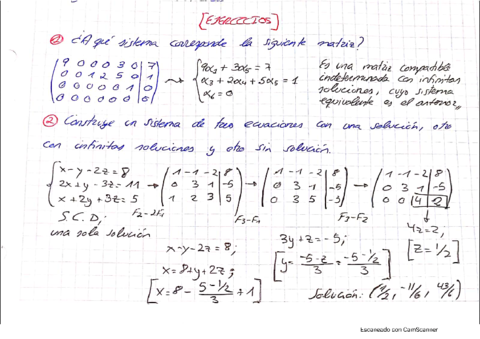 [EJERCICIOS]
① ¿A qué sistema corresponde la siguiente matriz?
(9 0 0 0 3 0 | 7
0 0 1 2 5 0 | 1
0 0 0 0 0 1 | 0
0 0 0 0 0 0 | 0)
→
{9α₁ + 3α₅ = 7
α₃ + 2α₄ + 5α₅ = 1
α₆ = 0
Es una matriz compatible
indeterminada con infinitas
soluciones, cuyo sistema
equivalente es el anterior.
② Construye un sistema de tres ecuaciones con una solución, otro
con infinitas soluciones y otro sin solución.
{x-y-2z=8
2x+y-3z=11
x+2y+3z=5
→ (1 -1 -2 | 8
0 3 1 | -5
1 2 3 | 5)
→ (1 -1 -2 | 8
0 3 1 | -5
0 3 5 | -5)
→ (1 -1 -2 | 8
0 3 1 | -5
0 0 4 | 2)
F₂-2F₁
F₃-F₁
F₃-F₂
S.C.D;
una sola solución
x-y-2z=8;
x=8+y+2z;
[x=8 - (5-1/2)/3 + 1]
3y+z=-5;
[y = (-5-z)/3 = (-5-1/2)/3]
4z=2;
[z=1/2]
Solución: 
Escaneado con CamScanner